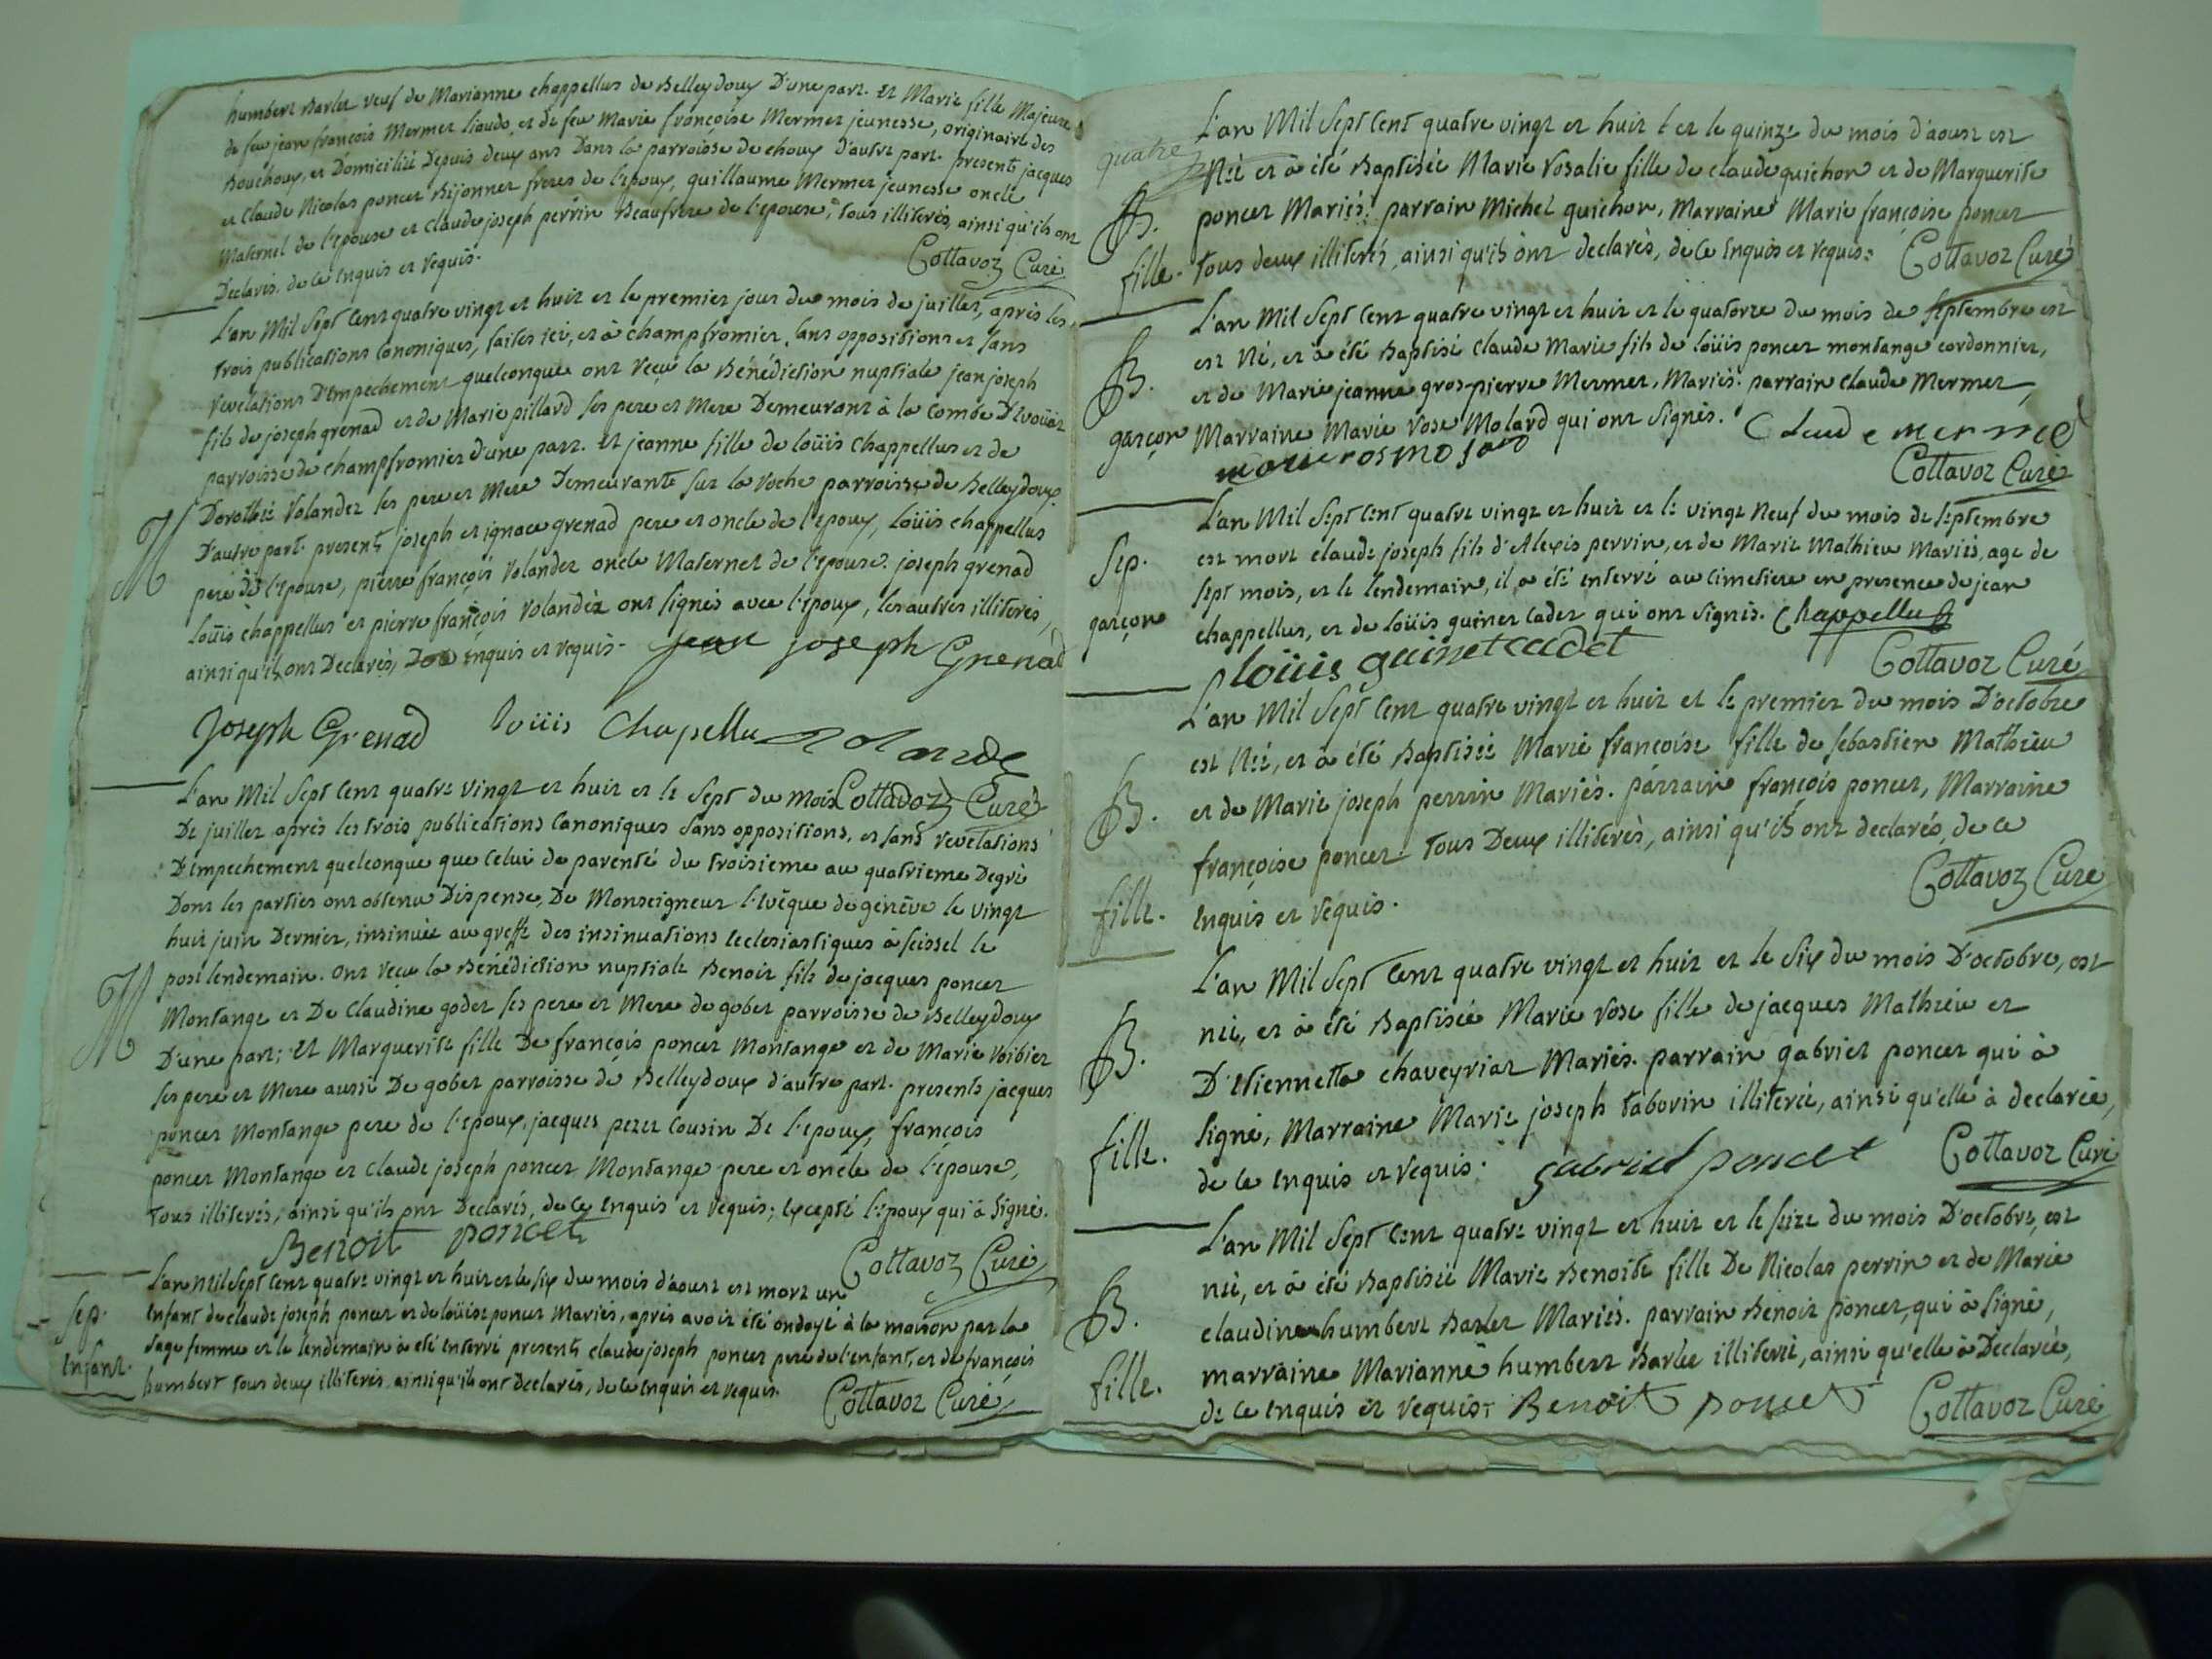 humbert Barlet veuf de Marianne chappellus de Belleydoux D'une part. Et Marie fille Majeure
de feu jean françois Mermet liaudo, et de feu Marie françoise Mermet jeunesse, originaire des
Bouchoux, et Domiciliée Depuis deux ans Dans la parroisse de choux d'autre part. presents jacques
et Claude Nicolas poncet Bijonnet freres de l'epoux, guillaume Mermet jeunesse oncle
Maternel de l'epouse et claude joseph perrin Beaufrere de l'epouse, tous illiterés, ainsi qu'ils ont
Declarés. de ce enquis et requis.
Cottavoz Curé
L'an Mil Sept Cent quatre vingt et huit et le premier jour du mois de juillet, après les
trois publications Canoniques, faites ici, et à champfromier, sans oppositions et sans
revelations D'Empechement quelconque ont reçu la Bénédiction nuptiale jean joseph
fils de joseph grenad et de Marie pillard ses pere et Mere Demeurant à la Combe D'Evouaz
parroisse de champfromier d'une part. Et jeanne fille de loüis Chappellus et de
M Dorothée Volandez ses pere et Mere Demeurante sur la roche parroisse de Belleydoux
D'autre part. presents joseph et ignace grenad pere et oncle de l'epoux, loüis chappellus
pere de l'epouse, pierre françois Volandez oncle Maternel de l'epouse. joseph grenad
loüis chappellus et pierre françois Volandez ont signés avec l'epoux, les autres illiterés,
ainsi qu'ils ont Declarés, De ce enquis et requis. jean joseph Grenad
Joseph Grenad loüis Chapellu Volandé
Cottavoz Curé
L'an Mil Sept Cent quatre vingt et huit et le Sept du mois
De juillet après les trois publications Canoniques sans oppositions, et sans revelations
D'Empechement quelconque que celui de parenté du troisieme au quatrieme Degré
Dont les parties ont obtenu Dispense, De Monseigneur l'Evêque de genève le vingt
huit juin Dernier, insinuée au greffe des insinuations Ecclesiastiques à seissel le
post lendemain. ont reçu la Bénédiction nuptiale Benoit fils de jacques poncet
M Montange et De Claudine godet ses pere et Mere de gobet parroisse de Belleydoux
D'une part; Et Marguerite fille De françois poncet Montange et de Marie Voibiet
ses pere et Mere aussi De gobet parroisse de Belleydoux d'autre part. presents jacques
poncet Montange pere de l'epoux, jacques peret Cousin De l'epoux, françois
poncet Montange et Claude joseph poncet Montange pere et oncle de l'epouse,
tous illiterés, ainsi qu'ils ont Declarés, de ce enquis et requis; excepté l'epoux qui à signé.
Benoit poncet
Cottavoz Curé
L'an Mil Sept Cent quatre vingt et huit et le six du mois d'aoust est mort un
Sep. Enfant de claude joseph poncet et de loüise poncet Mariés, après avoir été ondoyé à la maison par la
Enfant. sage femme et le lendemain à été enterré presents claude joseph poncet pere de l'enfant, et de françois
humbert tous deux illiterés ainsi qu'ils ont Declarés, de ce enquis et requis.
Cottavoz Curé
quatre
L'an Mil Sept Cent quatre vingt et huit et le quinze du mois d'aoust est
Née et à été Baptisée Marie rosalie fille de claude guichon et de Marguerite
B. poncet Mariés. parrain Michel guichon, Marraine Marie françoise poncet
fille. tous deux illiterés, ainsi qu'ils ont declarés, de ce enquis et requis. Cottavoz Curé
L'an Mil Sept Cent quatre vingt et huit et le quatorze du mois de septembre est
B. est Né, et à été Baptisé Claude Marie fils de loüis poncet montange cordonnier,
et de Marie jeanne gros-pierre Mermet, Mariés. parrain Claude Mermet,
garçon Marraine Marie rose Molard qui ont signés. Claude mermet
marie ros molard
Cottavoz Curé
L'an Mil Sept Cent quatre vingt et huit et le vingt neuf du mois de septembre
Sep. est mort claude joseph fils d'Alexis perrin, et de Marie Mathieu Mariés, age de
sept mois, et le lendemain, il à été enterré au cimetiere en presence de jean
garçon chappellus, et de loüis guinet cadet qui ont signés. Chappellus
loüis guinet cadet
Cottavoz Curé
L'an Mil Sept Cent quatre vingt et huit et le premier du mois D'octobre
est Née, et à été Baptisée Marie françoise fille de sebastien Mathieu
B. et de Marie joseph perrin Mariés. parrain françois poncet, Marraine
françoise poncet tous Deux illiterés, ainsi qu'ils ont declarés, de ce
fille. enquis et requis.
Cottavoz Curé
L'an Mil Sept Cent quatre vingt et huit et le six du mois D'octobre, est
B. née, et à été Baptisée Marie rose fille de jacques Mathieu et
D'Etiennette chaveyriat Mariés. parrain gabriel poncet qui à
signé, Marraine Marie joseph taborin illiterée, ainsi qu'elle à declarée,
fille. de ce enquis et requis. gabriel poncet Cottavoz Curé
L'an Mil Sept Cent quatre vingt et huit et le seize du mois D'octobre, est
née, et à été Baptisée Marie Benoite fille De Nicolas perrin et de Marie
B. claudine humbert Barlet Mariés. parrain Benoit poncet, qui à signé,
marraine Marianne humbert Barlet illiterée, ainsi qu'elle à Declarée,
fille. de ce enquis et requis. Benoit poncet Cottavoz Curé